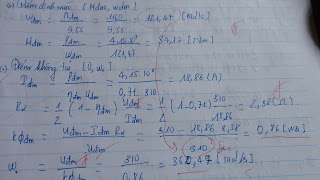 (1) Điểm định mức [Mđm, ωđm]
ωđm = nđm / 9,55 = 1160 / 9,55 = 121,47 [rad/s]
Mđm = Pđm / ωđm = 4,15.10³ / 121,47 = 34,17 [Nm]
Điểm không tải [0, ω₀]
Iđm = Pđm / ηđm Uđm = 4,15.10³ / 0,71.310 = 18,86 (A)
Rư = 1/2 (1 - ηđm) Uđm / Iđm = 1/2 (1 - 0,71) 310 / 18,86 = 2,38 (Ω)
kΦđm = Uđm - Iđm Rư / ωđm = 310 - 18,86 . 2,38 / = 0,86 [Wb]
ω₀ = Uđm / kΦđm = 310 / 0,86 = 36 ,47 [rad/s]